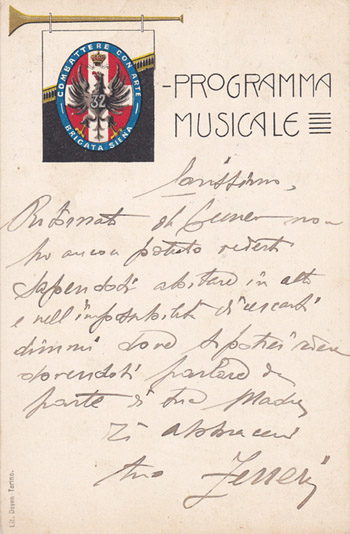 COMBATTERE CON ARTE
32
BRIGATA SIENA
-PROGRAMMA
MUSICALE
Carissimo,
Ritornato da Cuneo non
ho ancora potuto vederti
sapendoti abitare in alto
e nell'impossibilità di cercarti
dimmi dove ti potrei vedere
dovendoti parlare da
parte di tua Madre
Ti abbraccia
tuo
Lit. Doyen Torino.